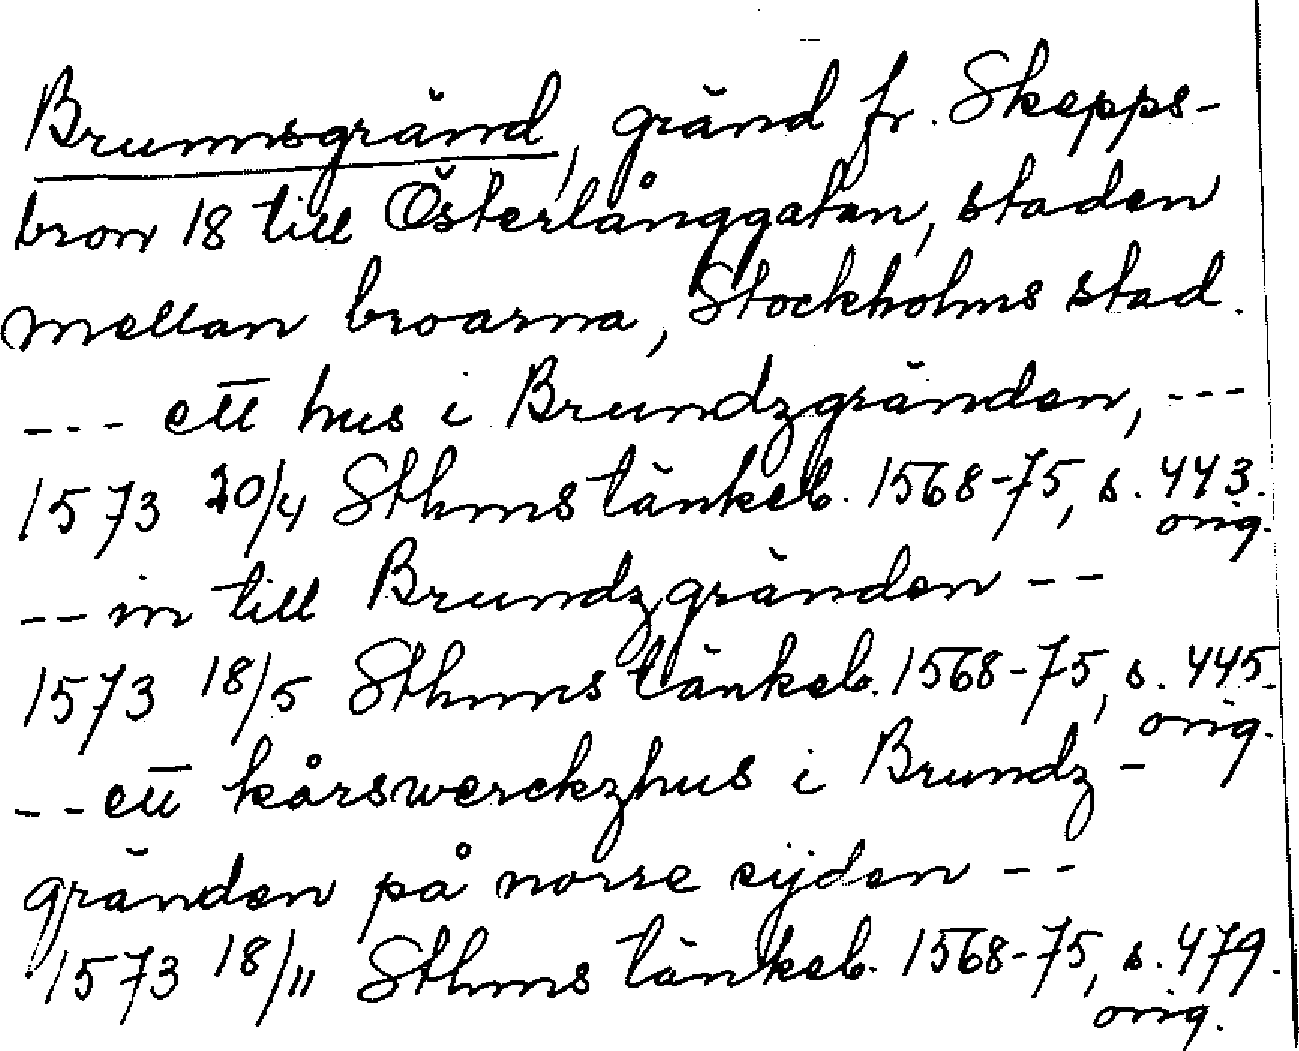 Brunnsgränd, gränd fr. Skepps-
bron 18 till Österlånggatan, staden
mellan broarna, Stockholms stad.
--- ett hus i Brundzgränden, ---
1573 20/4 Sthms tänkeb. 1568-75, s. 443.
orig.
-- in till Brundzgränden --
1573 18/5 Sthms tänkeb. 1568-75, s. 445.
orig.
-- ett kårswerckzhus i Brundz-
gränden på norre sijden --
1573 18/11 Sthms tänkeb. 1568-75, s. 479.
orig.